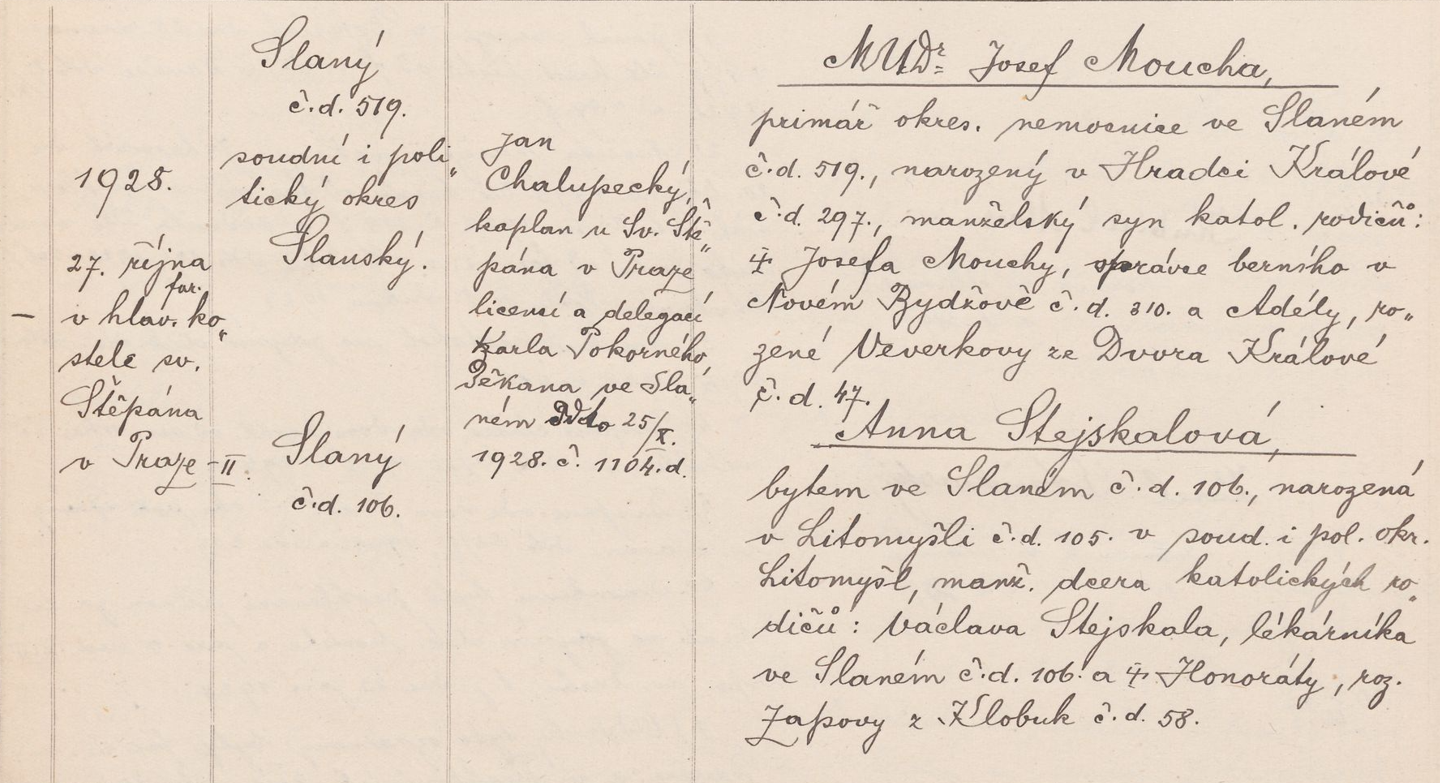 1928.
27. října
far.
v hlav. ko„
stele sv.
Štěpána
v Praze-II.
Slaný
č.d. 519.
soudní i poli„
tický okres
Slanský.
Slaný
č.d. 106.
Jan
Chalupecký,
kaplan u Sv. Ště„
pána v Praze
licencí a delegací
Karla Pokorného,
děkana ve Sla„
ném ddto 25/X.
1928. č. 1104. d.
MUDr. Josef Moucha,
primář okres. nemocnice ve Slaném
č.d. 519., narozený v Hradci Králové
č.d. 297., manželský syn katol. rodičů:
‡ Josefa Mouchy, správce berního v
Novém Bydžově č.d. 310. a Adély, ro„
zené Veverkovy ze Dvora Králové
č.d. 47.
Anna Stejskalová,
bytem ve Slaném č.d. 106., narozená
v Litomyšli č.d. 105. v soud. i pol. okr.
Litomyšl, manž. dcera katolických ro„
dičů: Václava Stejskala, lékárníka
ve Slaném č.d. 106. a ‡ Honoráty, roz.
Zapovy z Klobuk č.d. 58.